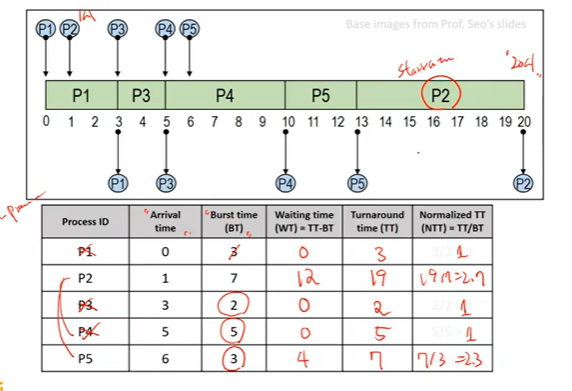 Base images from Prof. Seo's slides
P1 P2 P3 P4 P5
P1 P3 P4 P5 P2
0 1 2 3 4 5 6 7 8 9 10 11 12 13 14 15 16 17 18 19 20
P1 P3 P4 P5 P2
Process ID Arrival time Burst time (BT) Waiting time (WT) = TT-BT Turnaround time (TT) Normalized TT (NTT) = TT/BT
P1 0 3 0 3 1
P2 1 7 12 19 19/7=2.7
P3 3 2 0 2 1
P4 5 5 0 5 1
P5 6 3 4 7 7/3 =2.3